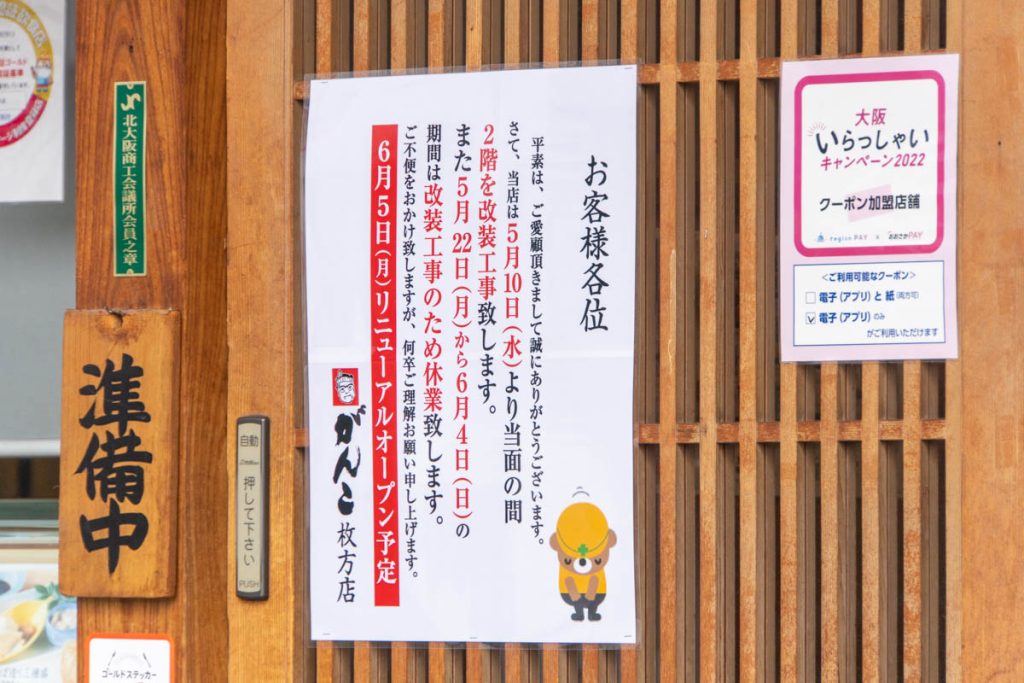 お客様各位
平素は、ご愛顧頂きまして誠にありがとうございます。
さて、当店は5月10日(水)より当面の間
2階を改装工事致します。
また5月22日(月)から6月4日(日)の
期間は改装工事のため休業致します。
ご不便をおかけ致しますが、何卒ご理解お願い申し上げます。
6月5日(月)リニューアルオープン予定
がんこ 枚方店
大阪
いらっしゃい
キャンペーン2022
クーポン加盟店舗
region PAY × おおさかPAY
<ご利用可能なクーポン>
電子(アプリ)と紙(両方可)
電子(アプリ)のみ
がご利用いただけます
北大阪商工会議所会員之章
準備中
自動
押して下さい
PUSH
ゴールドステッカー